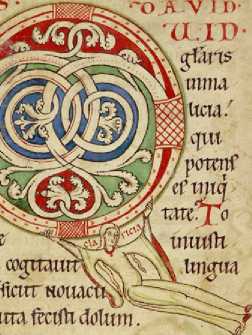 S. DAVID
U. ID
gl̃aris
inma
licia!
qui
potens
es iniq
tate. To
claricia
e iniusti
cogitauit lingua
sicut nouacu
uta fecisti dolum.